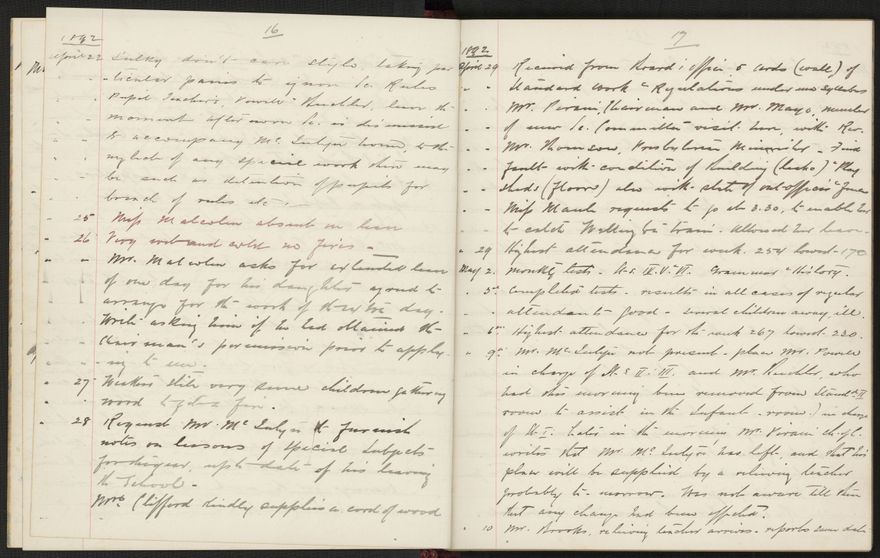 16
1892
April 22 Sulky don't care style, taking par
ticular pains to ignore Sc. Rules
Pupil Teachers, Vowell & Kuchler, leave the
moment afternoon Sc. is dismissed
to accompany Mr. home, to the
neglect of any special work there may
be such as detention of pupils for
breach of rules etc
25 Miss Malcolm absent on leave
26 Very wet and cold no fires -
Mr. Malcolm asks for extended leave
of one day for his daughter agreed to
arrange for the work of the day.
Write asking him if he had obtained the
Chairman's permission prior to apply-
ing to me.
27 very some children gathering
wood to a fire.
28 Request Mr. Mc to furnish
notes on lessons of Special Subjects
for the year, up to date of his leaving
the School -
Mrs Clifford kindly supplies a cord of wood
17
1892
April 29 Received from Board's office 5 cards (wall) of
Standard work & Regulations under new Syllabus
Mr. Chairman and Mr. Mayo, member
of new Sc. Committee visit here, with Rev.
Mr. Thomson, Presbyterian Minister - Find
fault with condition of building (leaks) & Play
sheds (floors) also with state of out-offices &
Miss requests to go at 3.30, to enable her
to catch Wellington train. Allowed her leave.
29 Highest attendance for week. 254 lowest 170
May 2. Monthly tests. IV. V. VI. Grammar & History.
3rd Completed tests. results in all cases of regular
attendants good - several children away, ill.
6th Highest attendance for the week 267 lowest 230.
9th Mr. Mc not present - place Mr. Vowell
in charge of II. III. and Mr. Kuchler, who
had this morning been removed from Standd II
room to assist in the Infants - room.) in charge
of I. Later in the morning Mr.
writes that Mr. Mc has left, and that his
place will be supplied by a relieving teacher
probably to-morrow. Was not aware till then
that any change had been effected.
10 Mr. Brooks, relieving teacher arrives. reports